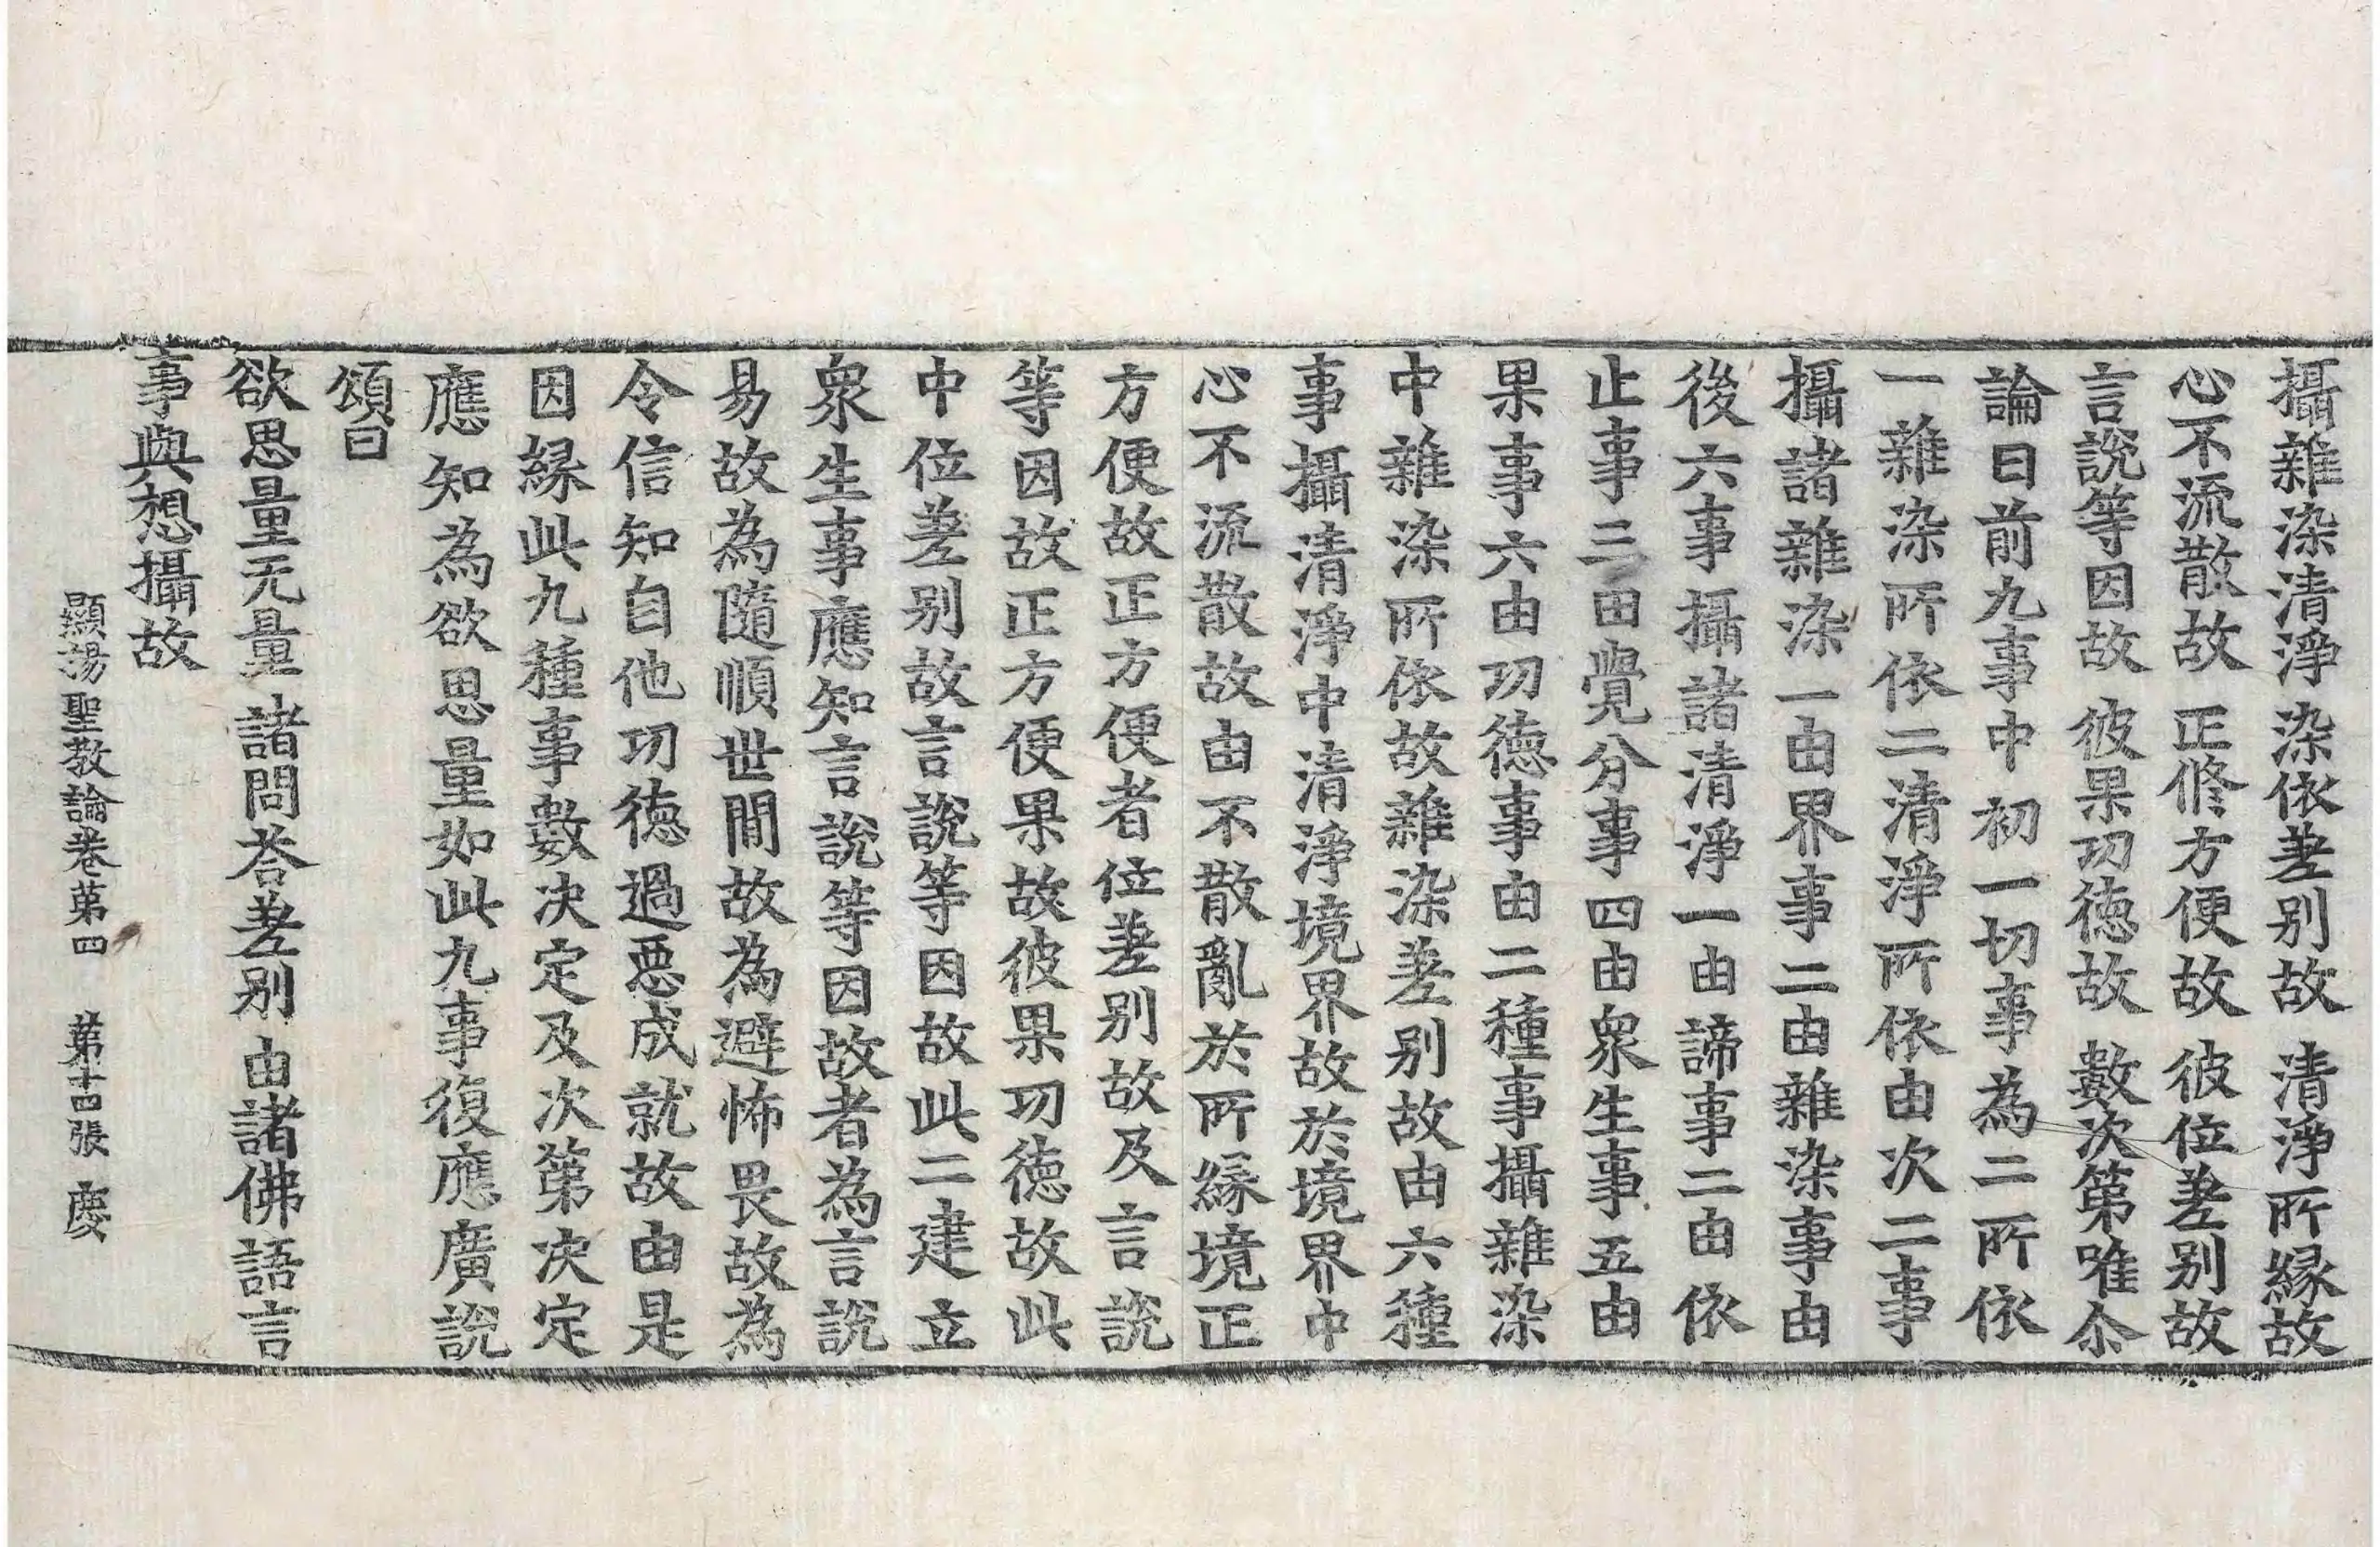 攝雜染清淨 染依差别故 清淨所縁故
心不流散故 正修方便故 彼位差别故
言說等因故 彼果功德故 數次第唯尒
論曰前九事中初一切事為二所依
一雜染所依二清淨所依由次二事
攝諸雜染一由界事二由雜染事由
後六事攝諸清淨一由諦事二由依
止事三由覺分事四由衆生事五由
果事六由功德事由二種事攝雜染
中雜染所依故雜染差别故由六種
事攝清淨中清淨境界故於境界中
心不流散故由不散亂於所縁境正
方便故正方便者位差别故及言說
等因故正方便果故彼果功德故此
中位差别故言說等因故此二建立
衆生事應知言說等因故者為言說
易故為隨順世間故為避怖畏故為
令信知自他功德過惡成就故由是
因縁此九種事數决定及次第决定
應知為欲思量如此九事復應廣說
頌曰
欲思量无量 諸問荅差别 由諸佛語言
事與想攝故
顯揚聖教論卷第四 第十四張 慶